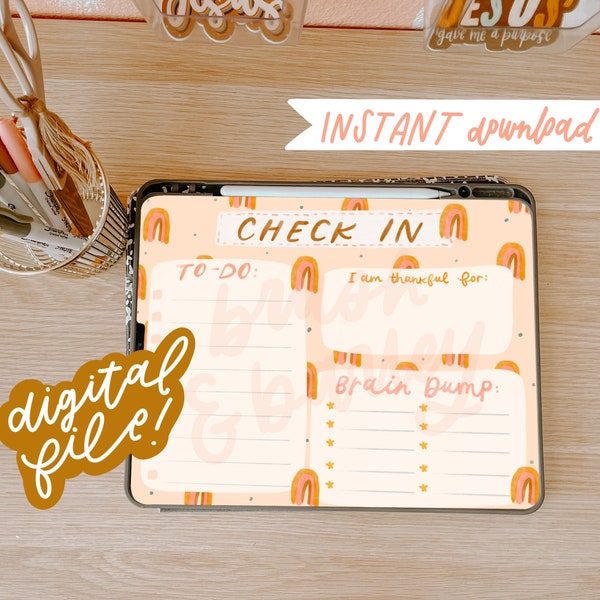 Jesus
JESUS
gave me a purpose
INSTANT download
CHECK IN
TO-DO:
I am thankful for:
brush
& barley
Brain Dump:
digital
file!